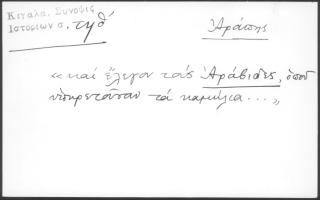 Κιγάλα, Σύνοψις
Ἱστοριῶν σ. τηθ´
Ἀράπης
«καὶ ἔλεγαν τοὺς Ἀράβιδες, ὁποῦ
ὑπηρετοῦσαν τὰ καμήλια...»